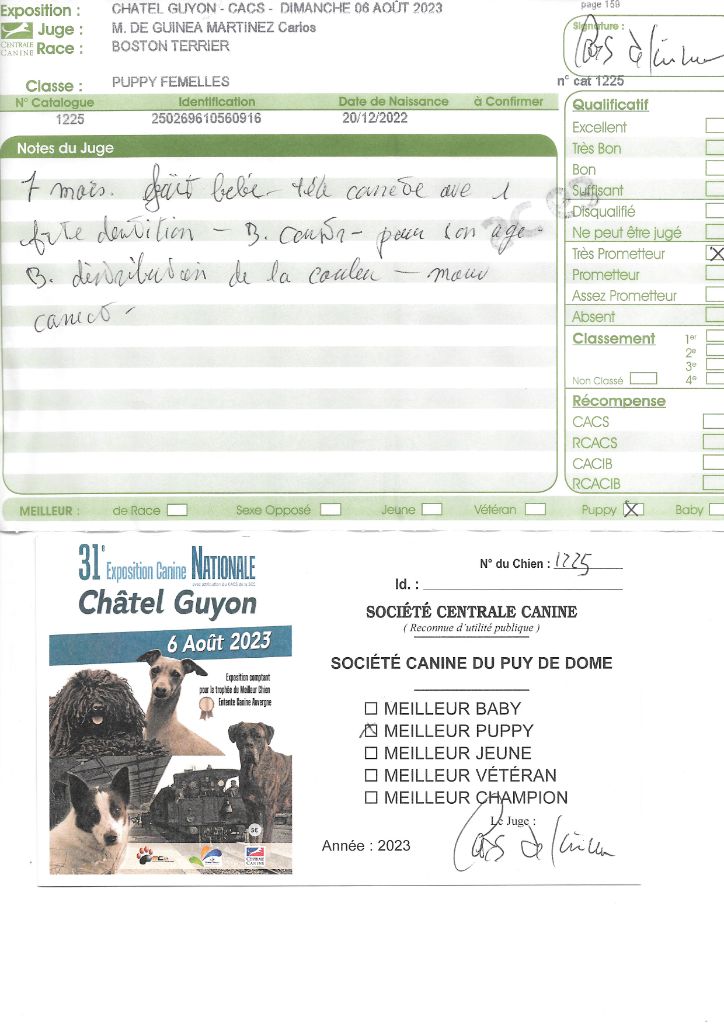 Exposition : CHATEL GUYON - CACS - DIMANCHE 06 AOÛT 2023
page 159
Juge : M. DE GUINEA MARTINEZ Carlos
Signature :
CENTRALE CANINE
Race : BOSTON TERRIER
Classe : PUPPY FEMELLES
n° cat 1225
N° Catalogue Identification Date de Naissance à Confirmer
1225 250269610560916 20/12/2022
Notes du Juge
7 mois. bebé - tête carrée ave 1
forte dentition - B. - pour son age -
B. distribution de la couleu -
correct -
Qualificatif
Excellent
Très Bon
Bon
Suffisant
Disqualifié
Ne peut être jugé
Très Prometteur X
Prometteur
Assez Prometteur
Absent
Classement 1er
2e
3e
Non Classé 4e
Récompense
CACS
RCACS
CACIB
RCACIB
MEILLEUR : de Race Sexe Opposé Jeune Vétéran Puppy X Baby
31e Exposition Canine NATIONALE
Châtel Guyon
6 Août 2023
Exposition comptant
pour le trophée du Meilleur Chien
Entente Canine Auvergne
5€
CENTRALE
CANINE
N° du Chien : 1225
Id. :
SOCIÉTÉ CENTRALE CANINE
( Reconnue d'utilité publique )
SOCIÉTÉ CANINE DU PUY DE DOME
MEILLEUR BABY
MEILLEUR PUPPY
MEILLEUR JEUNE
MEILLEUR VÉTÉRAN
MEILLEUR CHAMPION
Le Juge :
Année : 2023